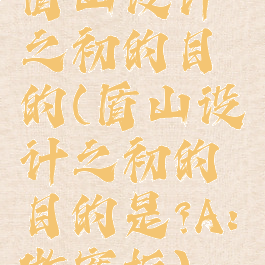 盾山设计
之初的目
的(盾山设
计之初的
目的是?A: